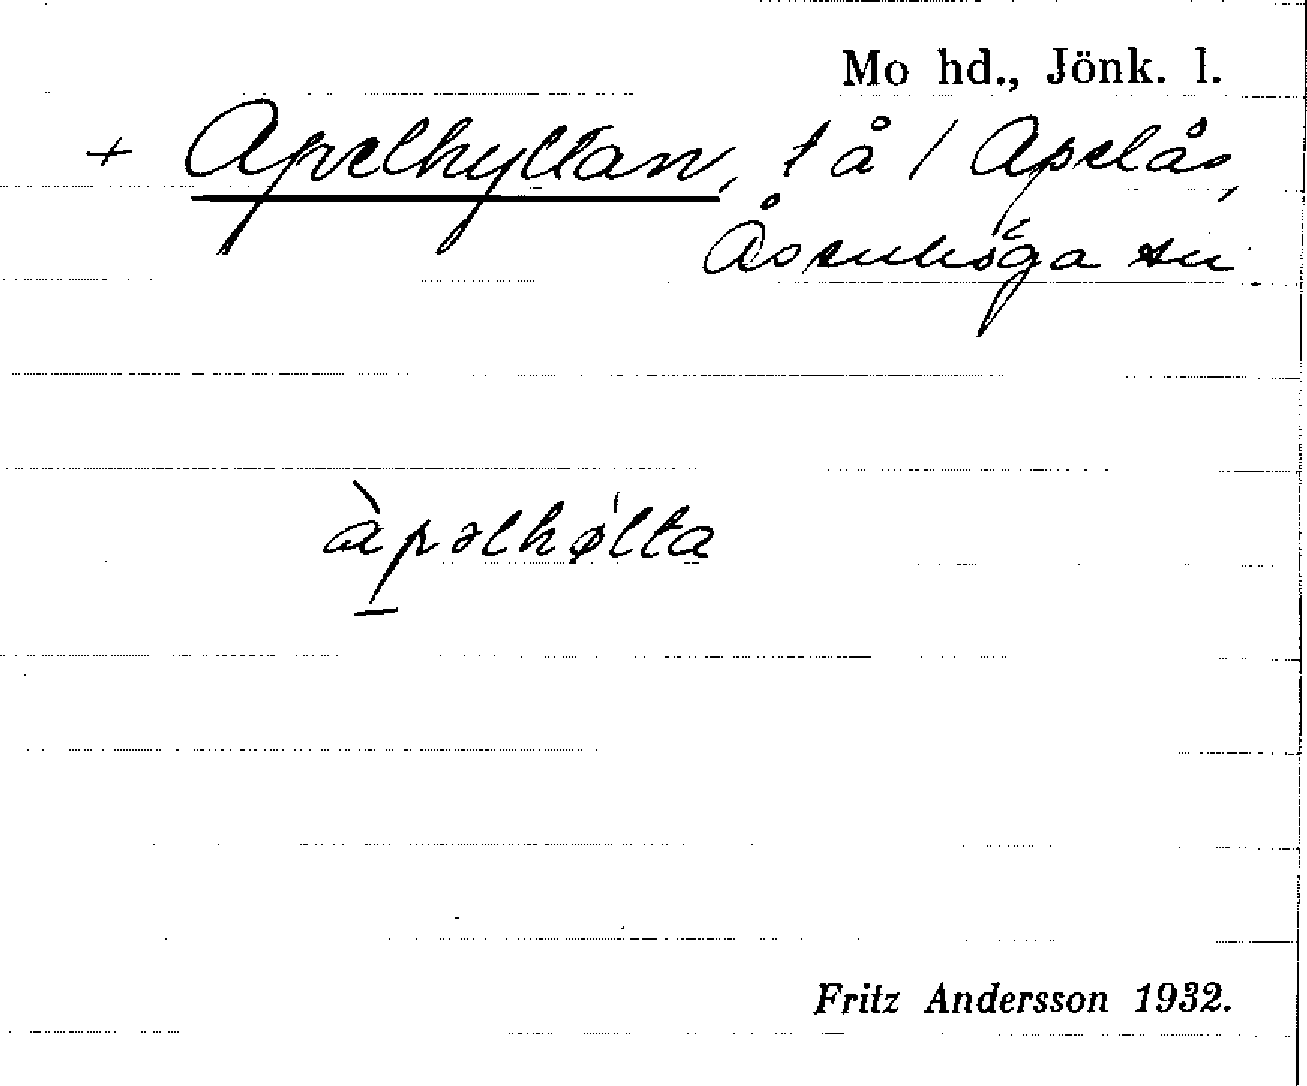 Mo hd., Jönk. l.
+ Apelhyltan, t å / Apelås,
Åsenhöga sn.
àpəlhølta
Fritz Andersson 1932.